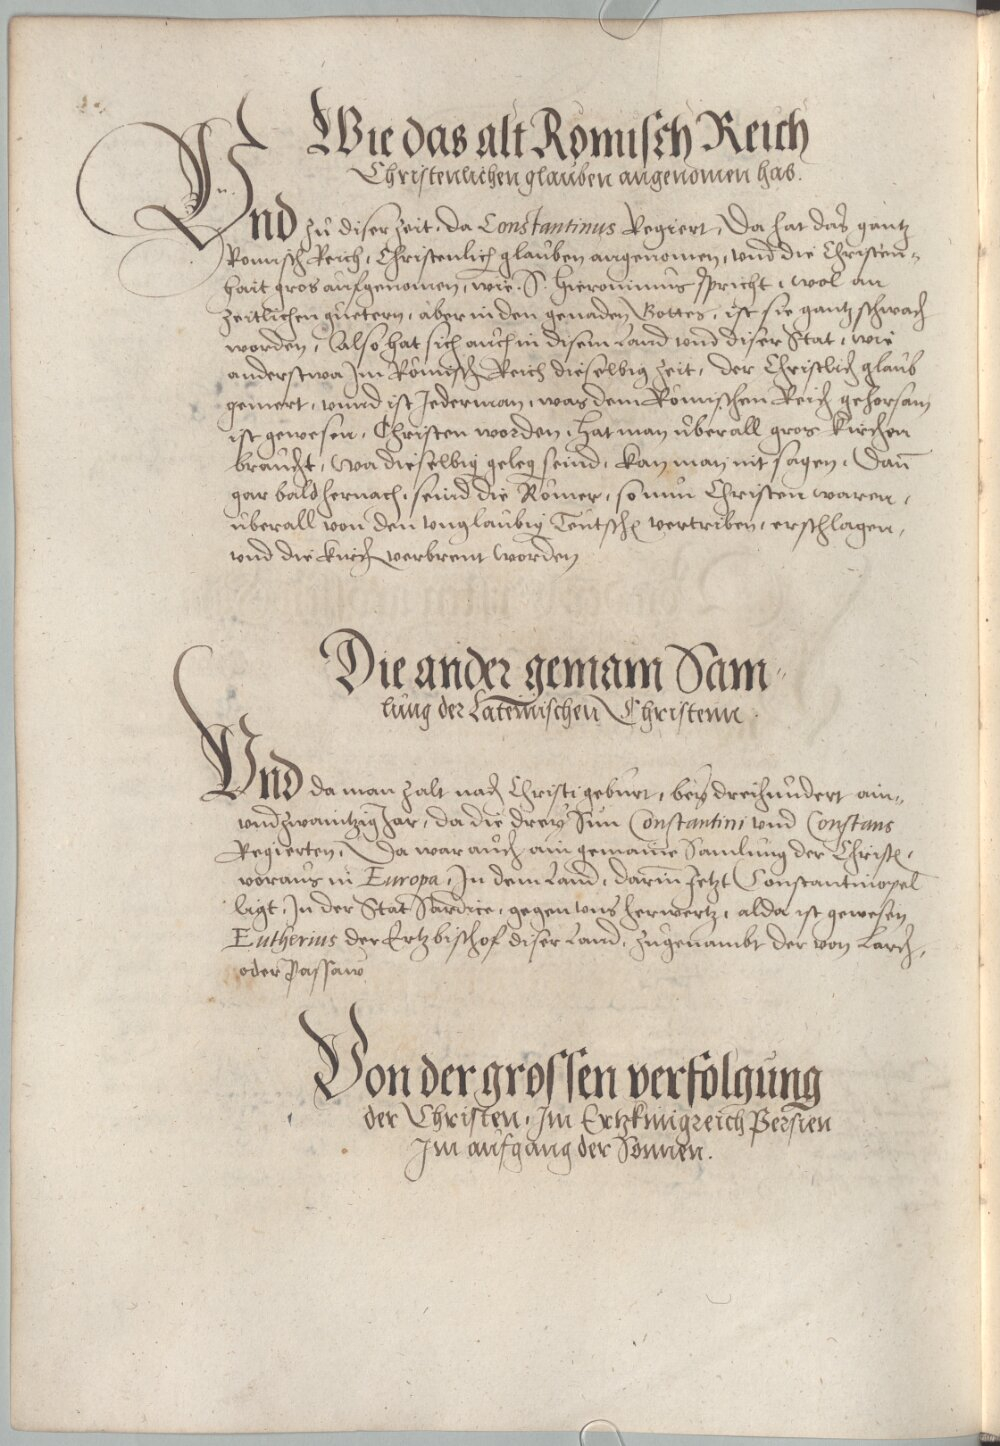 Wie das alt Römisch Reich
Christenlichen glauben angenomen hab.
Vnd zu diser Zeit, da Constantinus Regiert, Da hat das gantz
Romisch Reich, Christenlich glauben angenomen, vnd die Christen„
hait gros aufgenomen, wie S. Hieronimus spricht, wol an
zeitlichen guetern, aber in den genaden Gottes, ist sie gantz schwach
worden, Also hat sich auch in disem Land vnd diser Stat, wie
anderstwa Im Römisch Reich dieselbig Zeit, der Christlich glaub
gemert, vnnd ist Jederman, was dem Römischen Reich gehorsam
ist gewesen, Christen worden, hat man uberall gros Kirchen
braucht, Wa dieselbig geleg seind, kan man nit sagen, Dan̄
gar bald hernach, seind die Römer, so nun Christen waren,
uberall von den vnglaubig Teutsch vertriben, erschlagen,
vnd die Kirch verbrent worden
Die ander gemain Sam„
lung der Lateinischen Christenn.
Vnd da man zalt nach Christi geburt, bey dreihundert ain„
vndzwaintzig Jar, da die drey Sün Constantini vnd Constans
Regierten, Da war auch ain gemaine Samlung der Christ,
voraus in Europa, In dem Land, darin̄ Jetzt Constantinopel
ligt, In der Stat Sardice, gegen vns herwertz, alda ist gewesen
Eutherius der Ertzbischof diser Land, zugenambt der von Larch,
oder Passaw
Von der grossen verfolgung
der Christen, Im Ertzkinigreich Persien
Im aufgang der Sonnen.